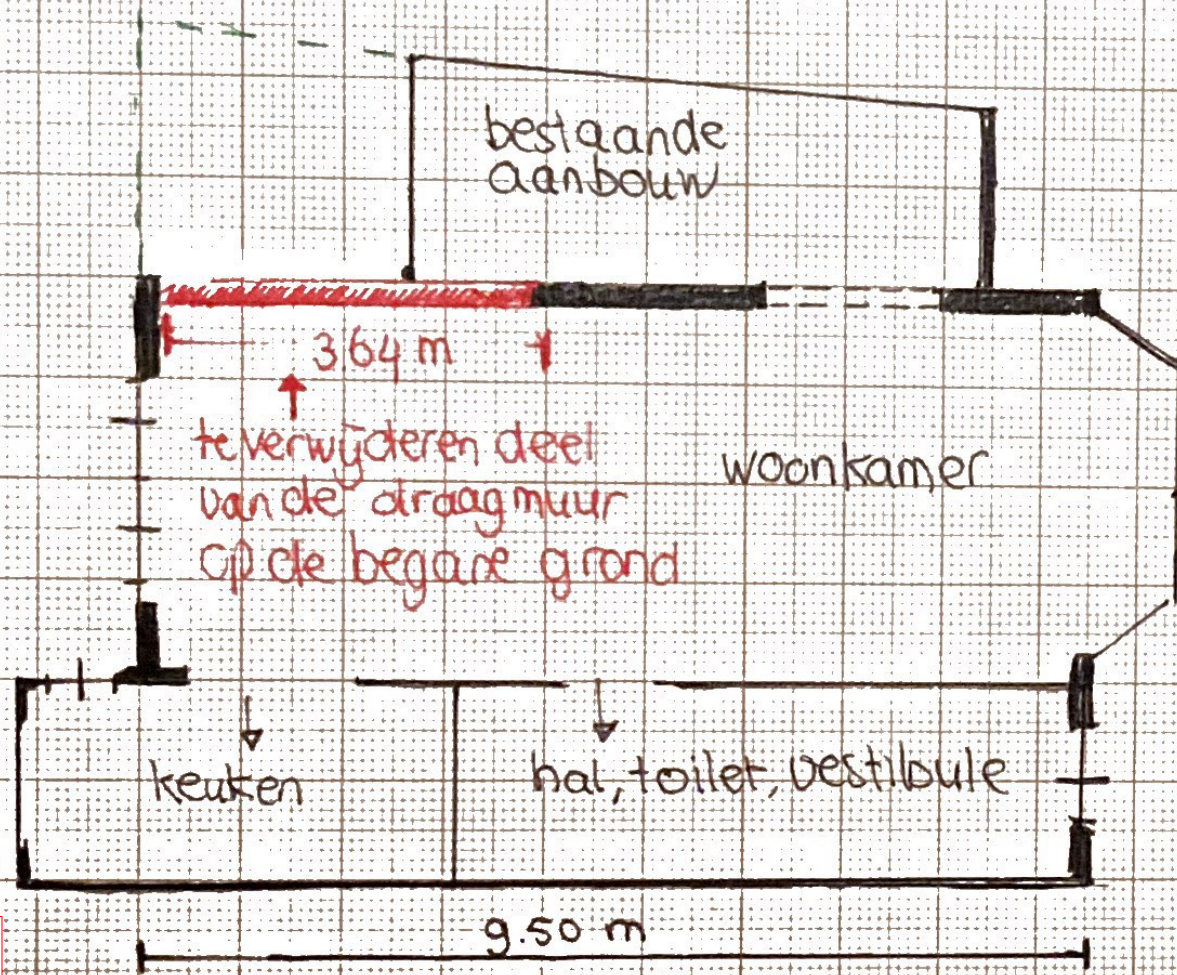 bestaande
aanbouw
3.64 m
te verwijderen deel
van de draagmuur
op de begane grond
woonkamer
keuken
hal, toilet, vestibule
9.50 m